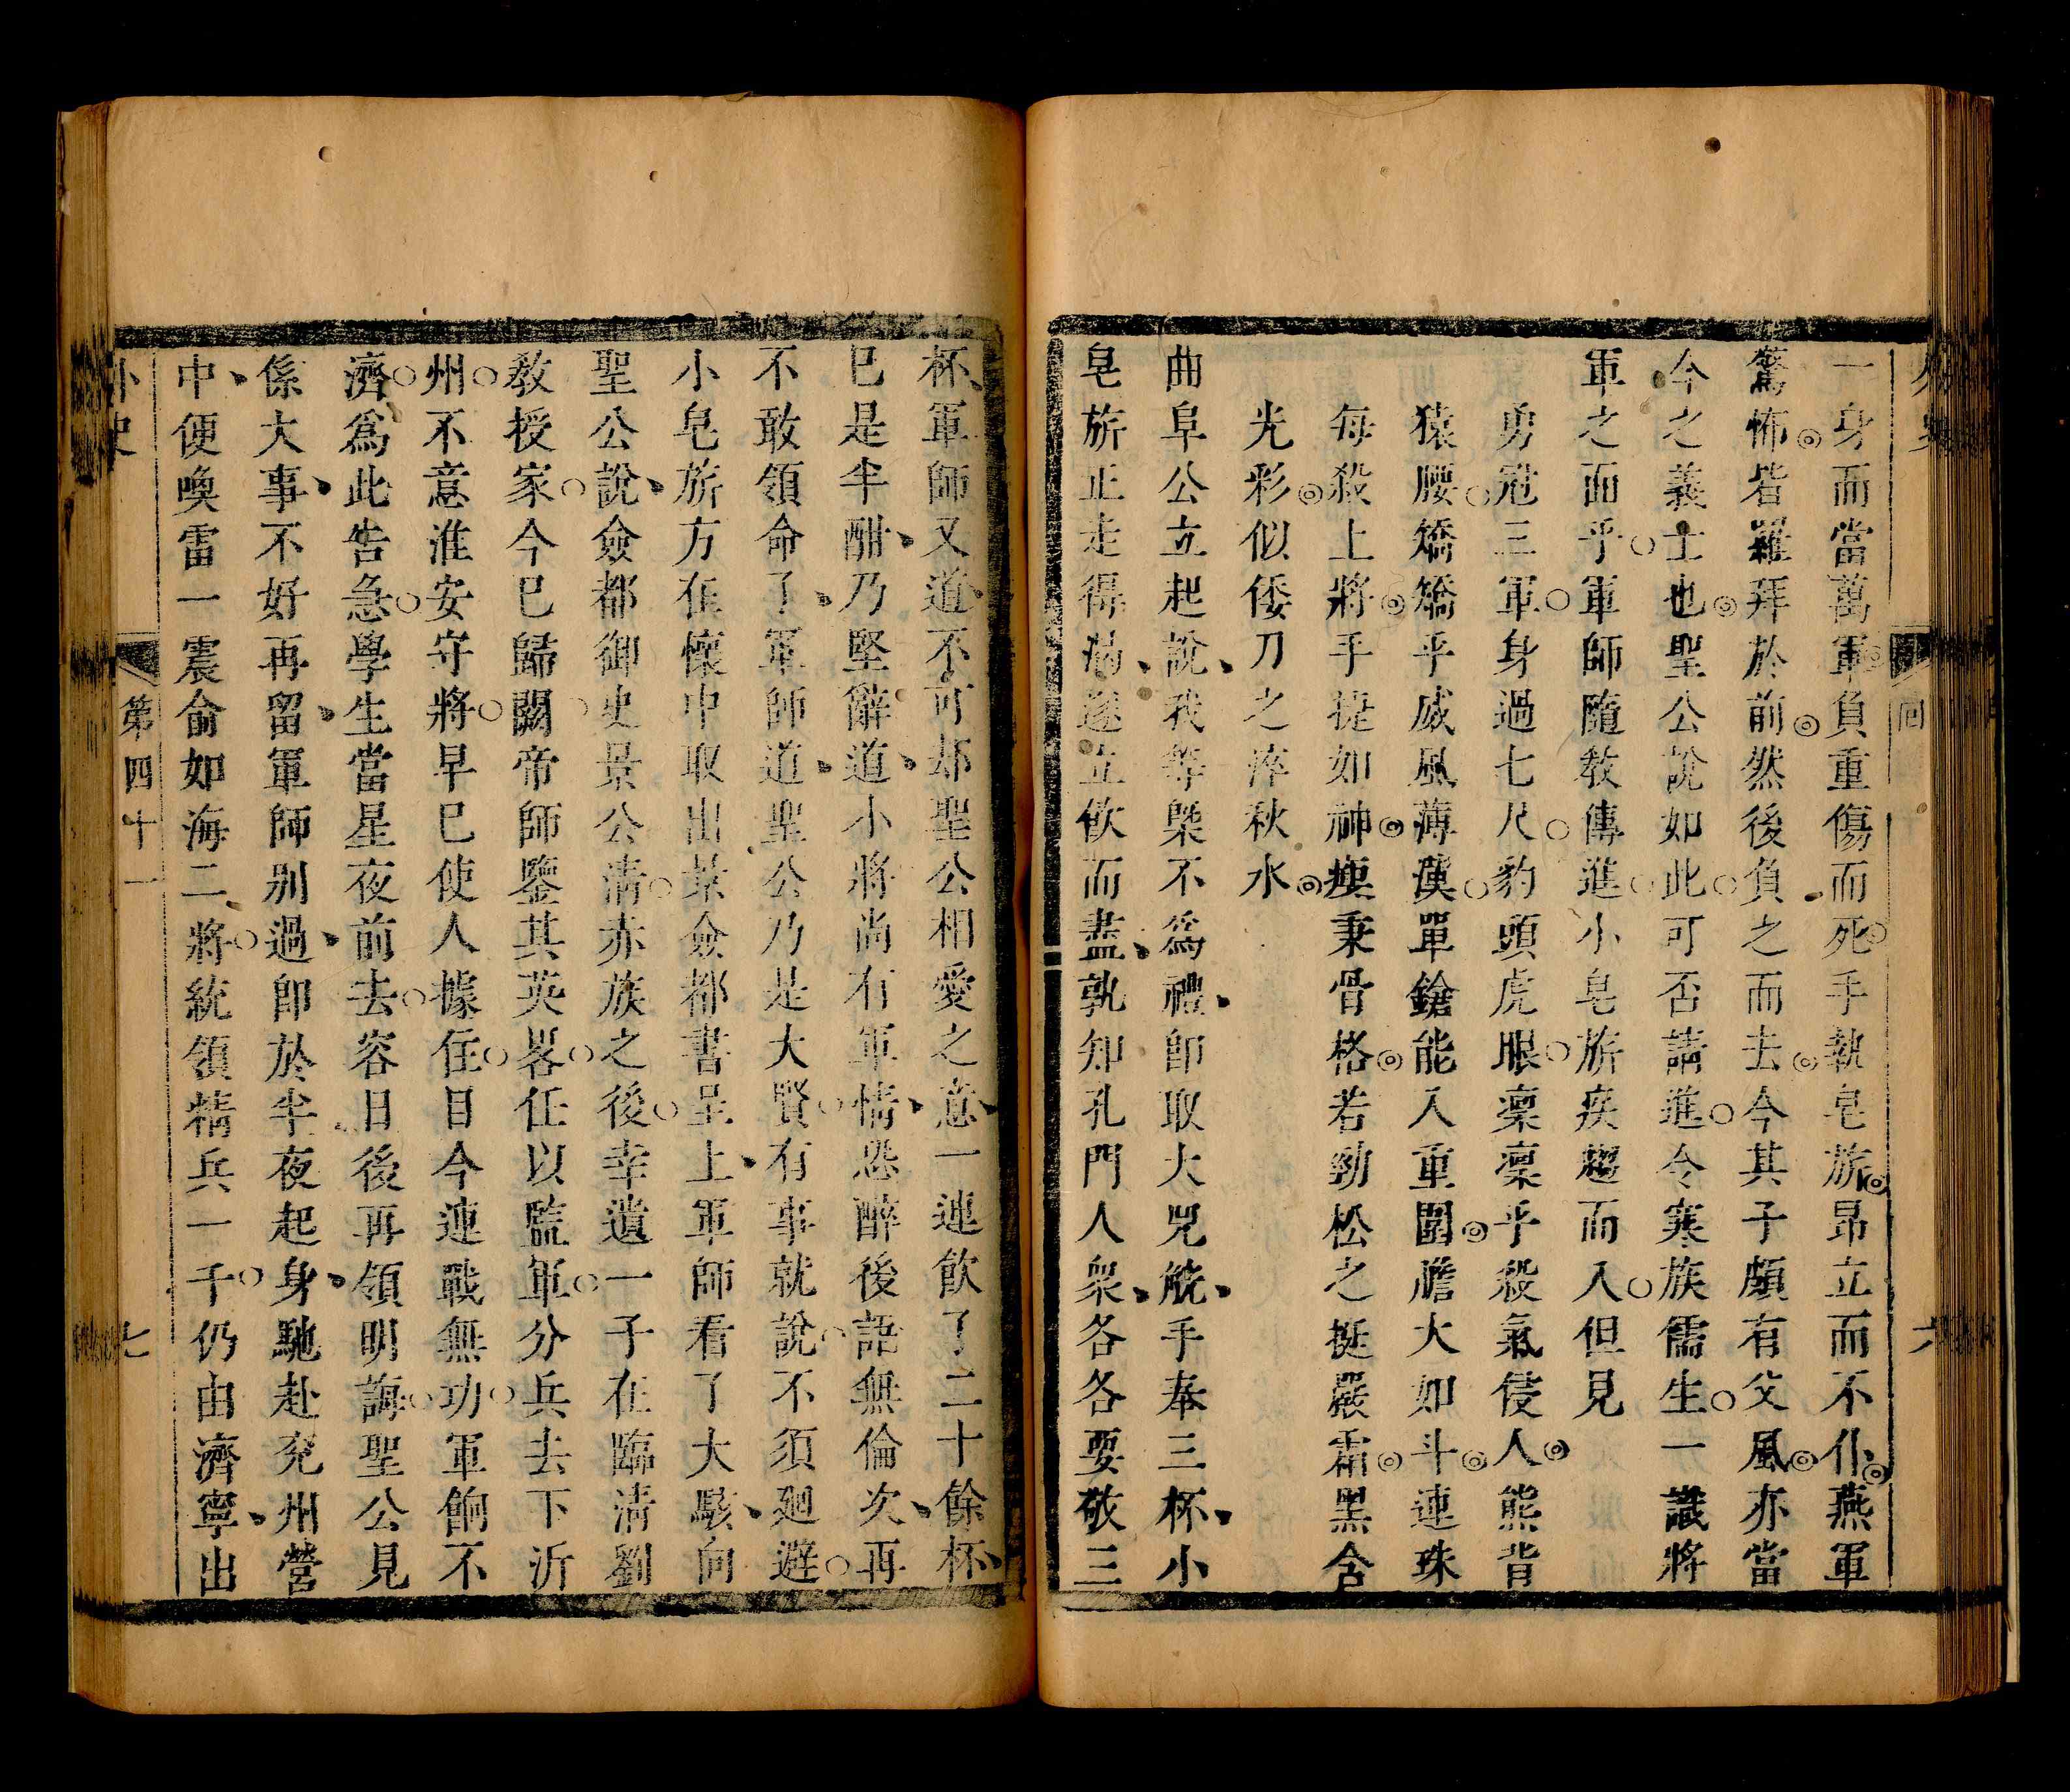 外史
回
六
一身而當萬軍負重傷而死手執皂旂昂立而不仆燕軍
驚怖皆羅拜於前然後負之而去今其子頗有父風亦當
今之義士也聖公說如此可否請進令寒族儒生一識將
軍之面乎軍師隨教傳進小皂旂疾趨而入但見
勇冠三軍身過七尺豹頭虎眼凜凜乎殺氣侵人熊背
猿腰矯矯乎威風薄漢單鎗能入重圍膽大如斗連珠
每殺上將手捷如神瘦秉骨格若勁松之挺嚴霜黑含
光彩似倭刀之淬秋水
曲阜公立起說我等槩不為禮卽取大兕觥手奉三杯小
皂旂正走得渴遂立飲而盡孰知孔門人衆各各要敬三
杯軍師又道不可却聖公相愛之意一連飲了二十餘杯
已是半酣乃堅辭道小將尚有軍情恐醉後語無倫次再
不敢領命了軍師道聖公乃是大賢有事就說不須廻避
小皂旂方在懷中取出景僉都書呈上軍師看了大駭向
聖公說僉都御史景公清赤族之後幸遺一子在臨清劉
教授家今已歸闕帝師鑒其英畧任以監軍分兵去下沂
州不意淮安守將早已使人據住目今連戰無功軍餉不
濟爲此告急學生當星夜前去容日後再領明誨聖公見
係大事不好再留軍師別過卽於半夜起身馳赴兗州營
中便喚雷一震俞如海二將統領精兵一千仍由濟寧出
外史
第四十一
七